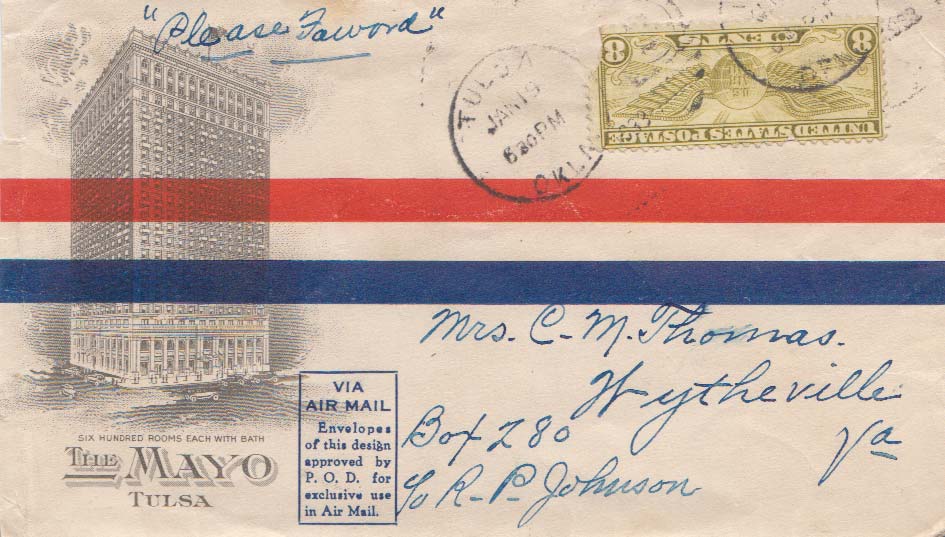 "Please Faword"
TULSA
JAN 19
6 30 PM
OKLA
UNITED STATES POSTAGE
8 CENTS 8
U.S.
Mrs. C. M. Thomas.
Wytheville
Box 280
Va
c/o R. P. Johnson
SIX HUNDRED ROOMS EACH WITH BATH
THE MAYO
TULSA
VIA
AIR MAIL
Envelopes
of this design
approved by
P. O. D. for
exclusive use
in Air Mail.